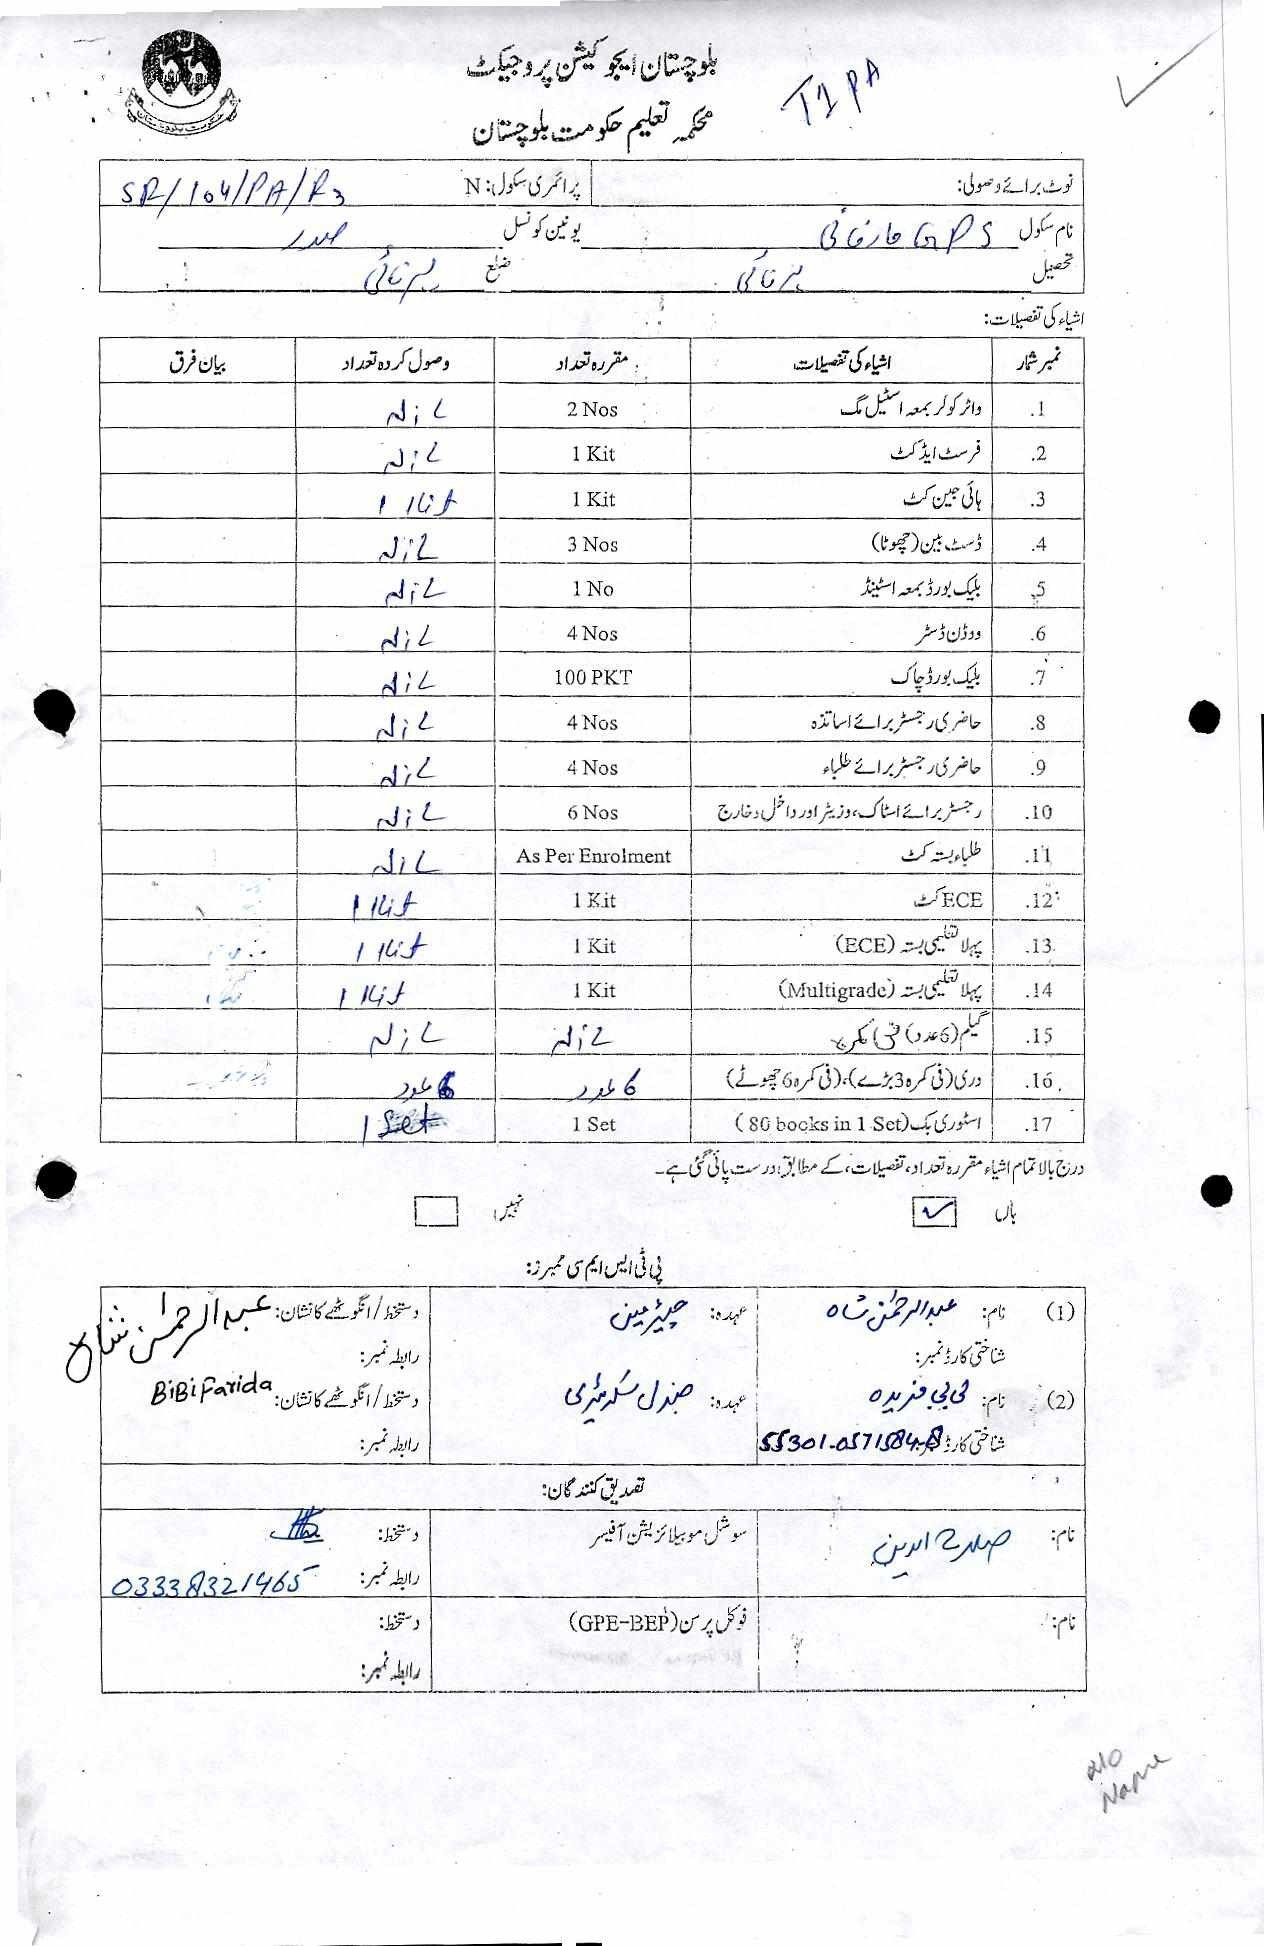 بلوچستان ایجوکیشن پروجیکٹ
T1 PA
محکمہ تعلیم حکومت بلوچستان
نوٹ برائے وصولی: پرائمری سکول: N SR/104/PA/R3
نام سکول GPS یونین کونسل صدر
تحصیل ہرنائی ضلع ہرنائی
اشیاء کی تفصیلات:
نمبر شمار اشیاء کی تفصیلات مقررہ تعداد وصول کردہ تعداد بیان فرق
1. واٹر کولر بمعہ اسٹیل مگ 2 Nos Nil
2. فرسٹ ایڈ کٹ 1 Kit Nil
3. ہائی جین کٹ 1 Kit 1 Kit
4. ڈسٹ بین (چھوٹا) 3 Nos Nil
5. بلیک بورڈ بمعہ اسٹینڈ 1 No Nil
6. ووڈن ڈسٹر 4 Nos Nil
7. بلیک بورڈ چاک 100 PKT Nil
8. حاضری رجسٹر برائے اساتذہ 4 Nos Nil
9. حاضری رجسٹر برائے طلباء 4 Nos Nil
10. رجسٹر برائے اسٹاک، وزیٹر اور داخل دخارج 6 Nos Nil
11. طلباء بستہ کٹ As Per Enrolment Nil
12. ECE کٹ 1 Kit 1 Kit
13. پہلا تعلیمی بستہ (ECE) 1 Kit 1 Kit
14. پہلا تعلیمی بستہ (Multigrade) 1 Kit 1 Kit
15. گلیم (6 عدد) فی کمرہ Nil Nil
16. دری (فی کمرہ 3 بڑے)، (فی کمرہ 6 چھوٹے) 6 عدد 6 عدد
17. اسٹوری بک (80 books in 1 Set) 1 Set 1 Set
درج بالا تمام اشیاء مقررہ تعداد، تفصیلات، کے مطابق درست پائی گئی ہے۔
ہاں نہیں
پی ٹی ایس ایم سی ممبرز:
(1) نام: عبدالرحمٰن شاہ عہدہ: چیئرمین دستخط/انگوٹھے کا نشان: عبدالرحمٰن شاہ
شناختی کارڈ نمبر: رابطہ نمبر:
(2) نام: بی بی فریدہ عہدہ: جنرل سکریٹری دستخط/انگوٹھے کا نشان: BiBi Farida
شناختی کارڈ 55301-0571584-8 رابطہ نمبر:
تصدیق کنندگان:
نام: صلاح الدین سوشل موبیلائزیشن آفیسر دستخط:
رابطہ نمبر: 03338321465
نام: فوکل پرسن (GPE-BEP) دستخط:
رابطہ نمبر:
Name